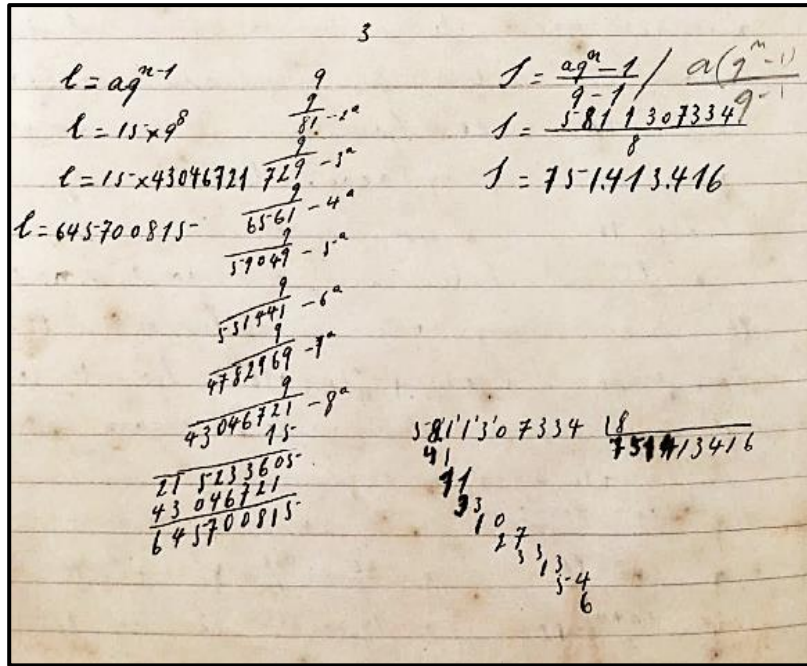 3
l = aq^{n-1}
l = 15 × 9^8
l = 15 × 43046721
l = 645700815
9
9
81 - 2ª
9
729 - 3ª
9
6561 - 4ª
9
59049 - 5ª
9
531441 - 6ª
9
4782969 - 7ª
9
43046721 - 8ª
15
215233605
43046721
645700815
S = aq^n - 1 / q - 1 / a(q^n - 1) / q - 1
S = 5811307334 / 8
S = 751.413.416
5811307334 | 8
41 751413416
11
33
10
27
33
13
54
6